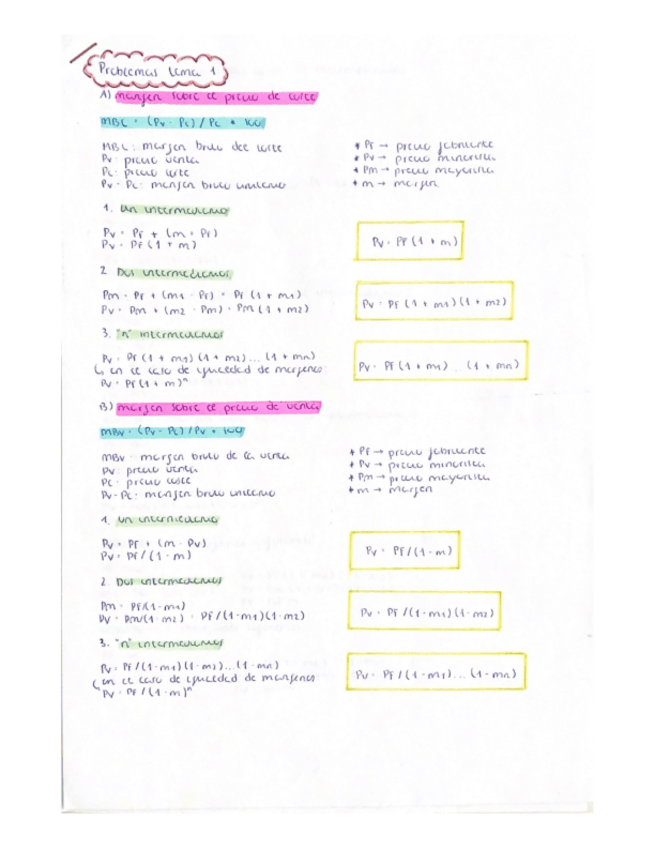 Problemas tema 1
A) margen sobre el precio de coste
MBC = (Pv - Pc) / Pc * 100
MBC: margen bruto del coste
Pv: precio venta
Pc: precio coste
Pv - Pc: margen bruto unitario
* Pf → precio fabricante
* Pv → precio minorista
* Pm → precio mayorista
* m → margen
1. Un intermediario
Pv = Pf + (m · Pf)
Pv = Pf (1 + m)
Pv = Pf (1 + m)
2. Dos intermediarios
Pm = Pf + (m1 · Pf) = Pf (1 + m1)
Pv = Pm + (m2 · Pm) = Pm (1 + m2)
Pv = Pf (1 + m1) (1 + m2)
3. "n" intermediarios
Pv = Pf (1 + m1) (1 + m2) ... (1 + mn)
↳ en el caso de igualdad de margenes:
Pv = Pf (1 + m)ⁿ
Pv = Pf (1 + m1) ... (1 + mn)
B) margen sobre el precio de venta
MBV = (Pv - Pc) / Pv * 100
MBV = margen bruto de la venta
Pv: precio venta
Pc: precio coste
Pv - Pc: margen bruto unitario
* Pf → precio fabricante
* Pv → precio minorista
* Pm → precio mayorista
* m → margen
1. Un intermediario
Pv = Pf + (m · Pv)
Pv = Pf / (1 - m)
Pv = Pf / (1 - m)
2. Dos intermediarios
Pm = Pf/(1 - m1)
Pv = Pm/(1 - m2) = Pf / (1 - m1) (1 - m2)
Pv = Pf / (1 - m1) (1 - m2)
3. "n" intermediarios
Pv = Pf / (1 - m1) (1 - m2) ... (1 - mn)
↳ en el caso de igualdad de margenes
Pv = Pf / (1 - m)ⁿ
Pv = Pf / (1 - m1) ... (1 - mn)